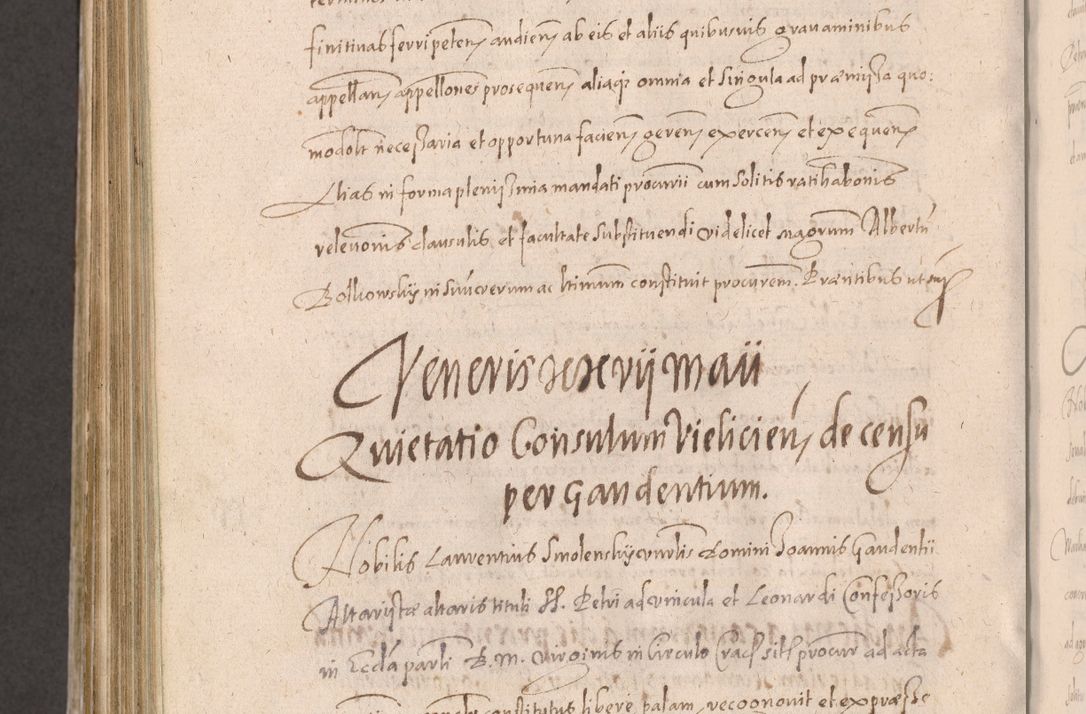 finitivas ferri peten) audien) ab eis et aliis quibusvis gravaminibus
appellan) appellones prosequen) aliaq3 omnia et singula ad præmissa quo:
modolt necessaria et opportuna facien) geren) exercen) et exequen)
Alias in forma plenissima mandati procurii cum solitis ratihabonis
relevonis clausulis et facultate substituendi videlicet magrum Albertu
constituit procurem. Præntibus ut
Veneris xxvij maii
Quietatio Consulum Vielicien) de censu
per Gaudentium.
Nobilis Laurentius Smolensky vnrlis Domini Joannis Gaudentii
Altaristæ altaris tituli SS. Petri ad vincula et Leonardi Confessoris
in Eccla parli B. M. Virginis in Circulo Crac) sitt procur ad acta
constitutus libere palam, recognovit et expræsse